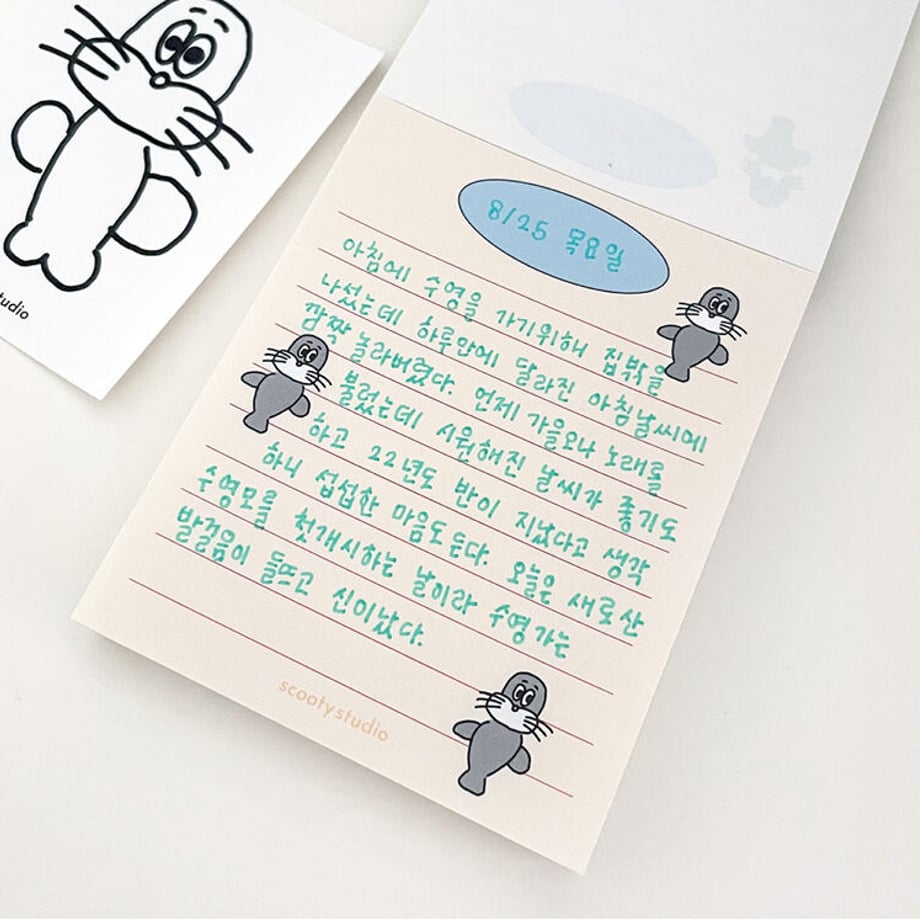 8/25 목요일
아침에 수영을 가기위해 집밖을
나섰는데 하루만에 달라진 아침날씨에
깜짝 놀라버렸다. 언제 가을오나 노래를
불렀는데 시원해진 날씨가 좋기도
하고 22년도 반이 지났다고 생각
하니 섭섭한 마음도든다. 오늘은 새로산
수영모를 첫개시하는 날이라 수영가는
발걸음이 들뜨고 신이났다.
scooty studio
tudio